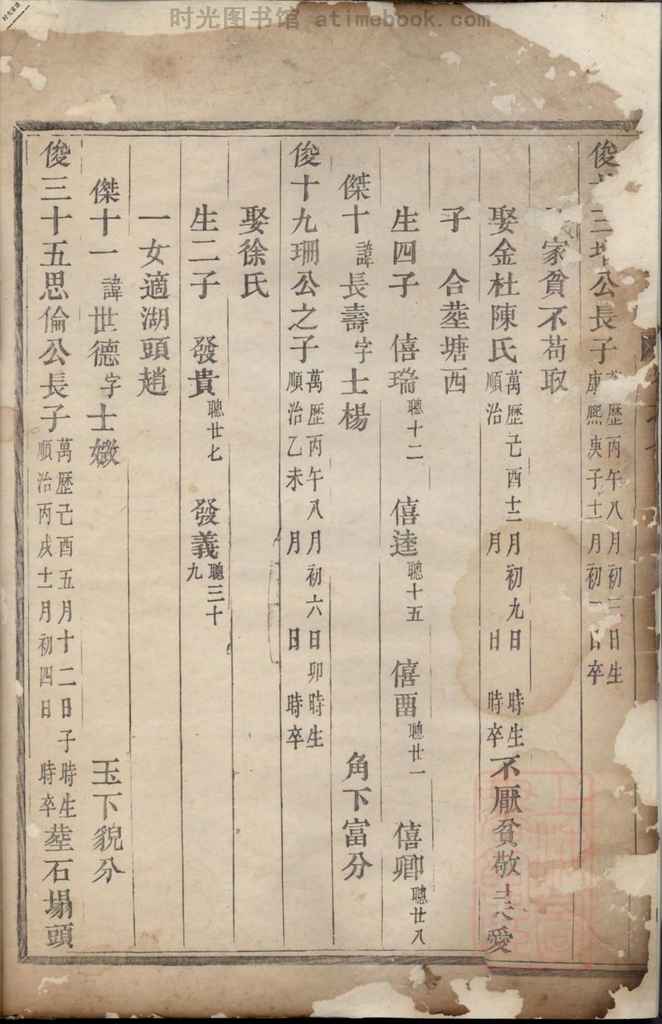 时光图书馆 atimebook.com
俊 三 公長子 萬歷丙午八月初三日生 康熙庚子十一月初一日卒
家貧不苟取
娶金杜陳氏 萬歷己酉十二月初九日 時生 順治 月 日 時卒 不厭貧敬夫愛
子 合塟塘西
生四子 僖瑞聰十二 僖逵聰十五 僖 聰廿一 僖卿聰廿八
傑十 諱長壽字士楊 角下富分
俊十九珊公之子 萬歷丙午八月初六日卯時生 順治乙未 月 日 時卒
娶徐氏
生二子 發貴聰廿七 發義聰三十九
一女適湖頭趙
傑十一 諱世德字士 玉下貌分
俊三十五思倫公長子 萬歷己酉五月十二日子時生 順治丙戌十一月初四日 時卒 塟石塌頭